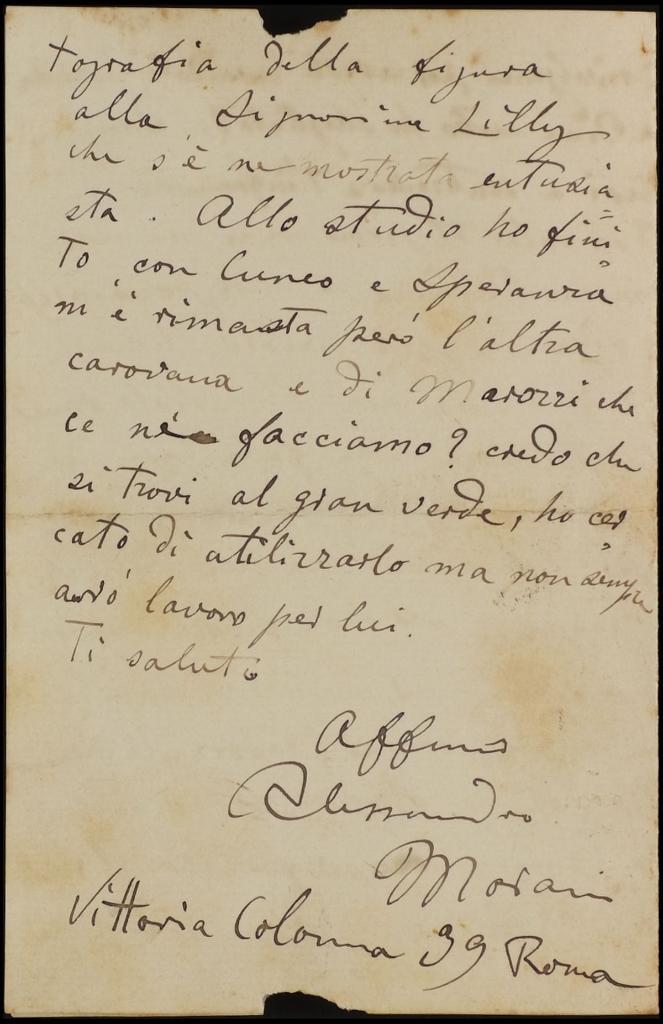 tografia della figura
alla Signorina Lilly
che s'è ne mostrata entusia
sta. Allo studio ho fini
to, con Cuneo e Speranza
m'è rimasta però l'altra
carovana e di Marozzi che
ce ne facciamo? credo che
si trovi al gran verde, ho cer
cato di utilizzarlo ma non sempre
avrò lavoro per lui.
Ti saluto
Affmo
Alessandro
Morani
Vittoria Colonna 39 Roma